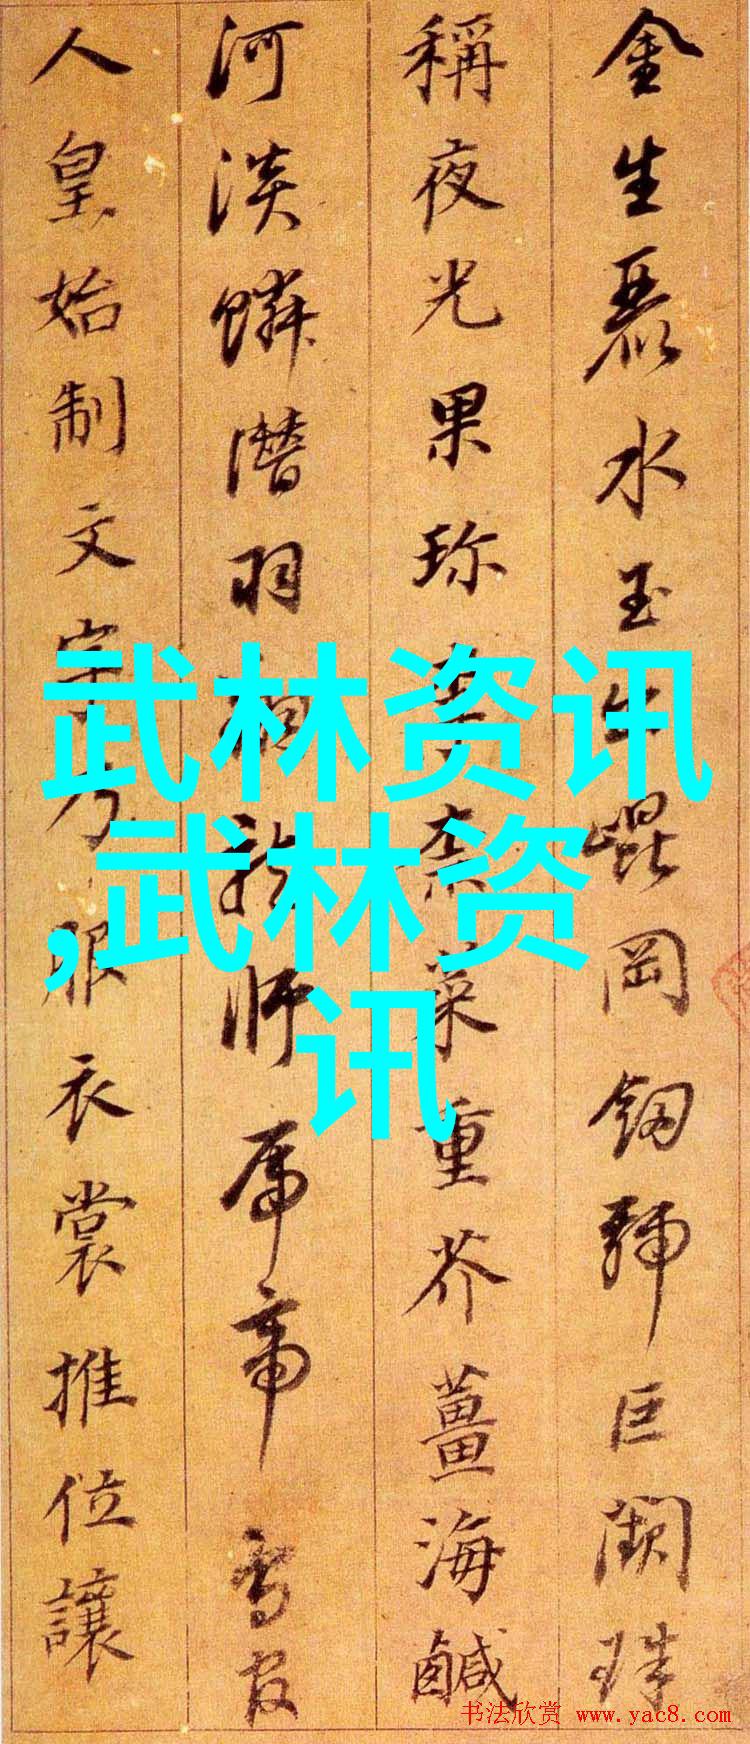 金生麗水玉出崑岡劔號巨闕珠
稱夜光果珎李柰菜重芥薑海鹹
河淡鱗潛羽翔龍師帝鳥官
人皇始制文字乃服衣裳推位讓
武林资讯
,武林资
讯
书法欣赏 www.yac8.com